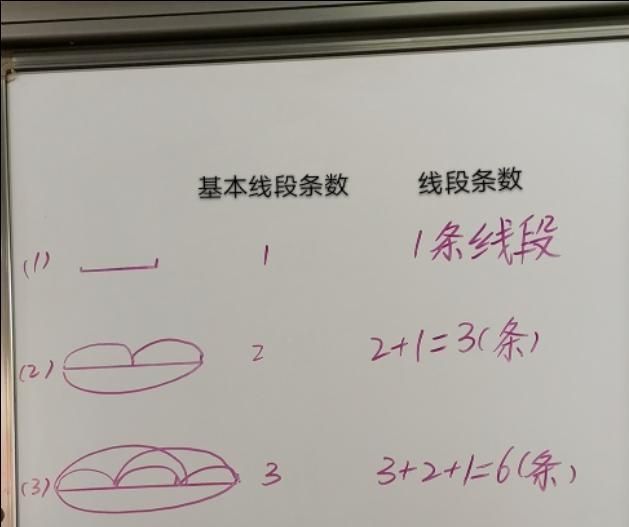 基本线段条数 线段条数
(1) 1 1条线段
(2) 2 2+1=3(条)
(3) 3 3+2+1=6(条)